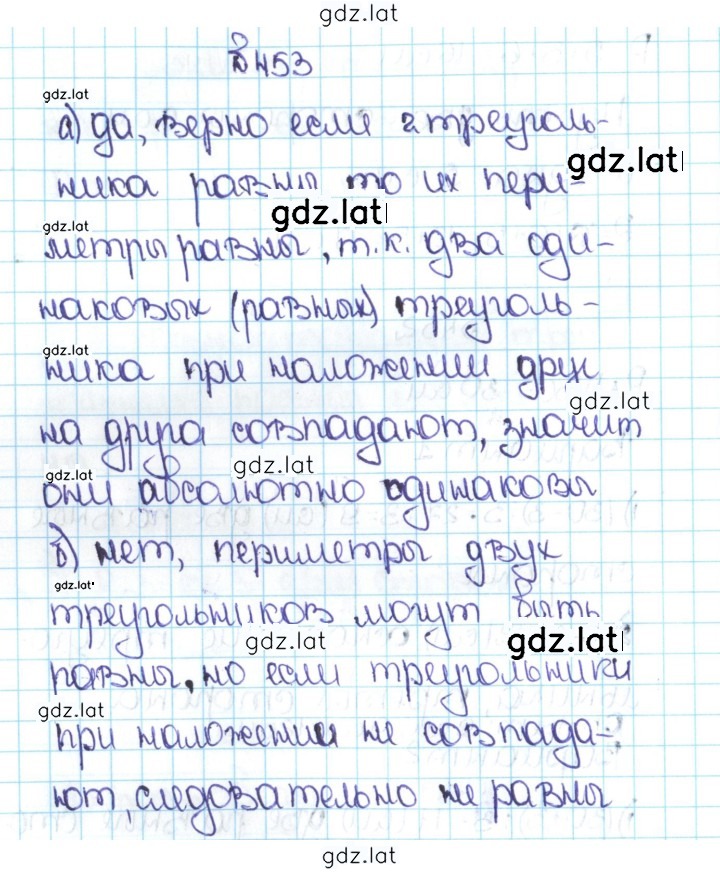 gdz.lat
№453
gdz.lat
а) да, верно если 2 треуголь-
gdz.lat
ника равны то их пери-
gdz.lat
gdz.lat
метры равны, т.к. два оди-
наковых (равных) треуголь-
gdz.lat
ника при наложении друг
gdz.lat
на друга совпадают, значит
gdz.lat
gdz.lat
они абсолютно одинаковы
б) нет, периметры двух
gdz.lat
треугольников могут быть
gdz.lat
gdz.lat
равны, но если треугольники
gdz.lat
при наложении не совпада-
ют, следовательно не равны
gdz.lat